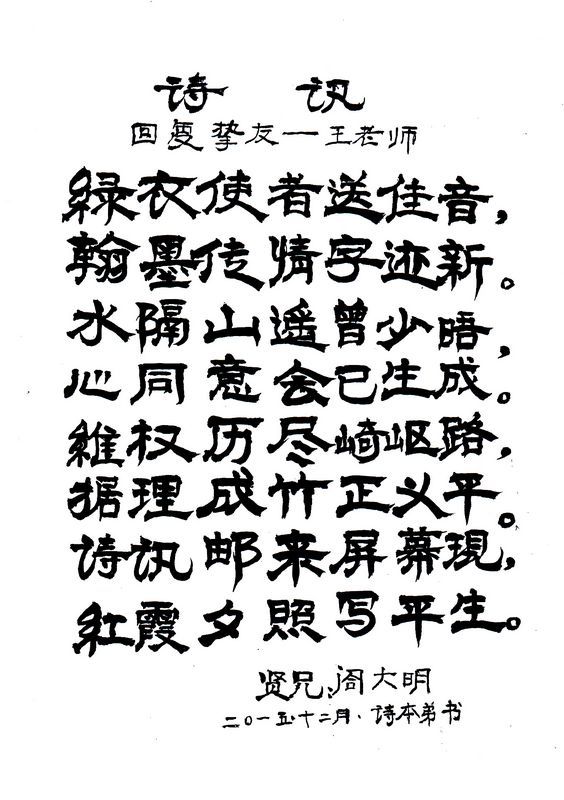 诗 讯
回复挚友一王老师
緑衣使者送佳音，
翰墨传情字迹新。
水隔山遥曾少晤，
心同意会已生成。
維权历尽崎岖路，
据理成竹正义平。
诗讯邮来屏幕現，
紅霞夕照写平生。
贤兄：阁大明
二〇一五十二月·诗本弟书